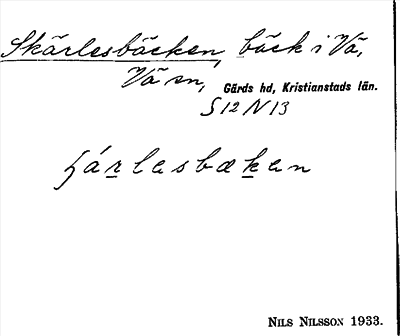 Skärlesbäcken, bäck i Vä,
Vä sn, Gärds hd, Kristianstads län.
S 12 N 13
hárlesbæken
NILS NILSSON 1933.